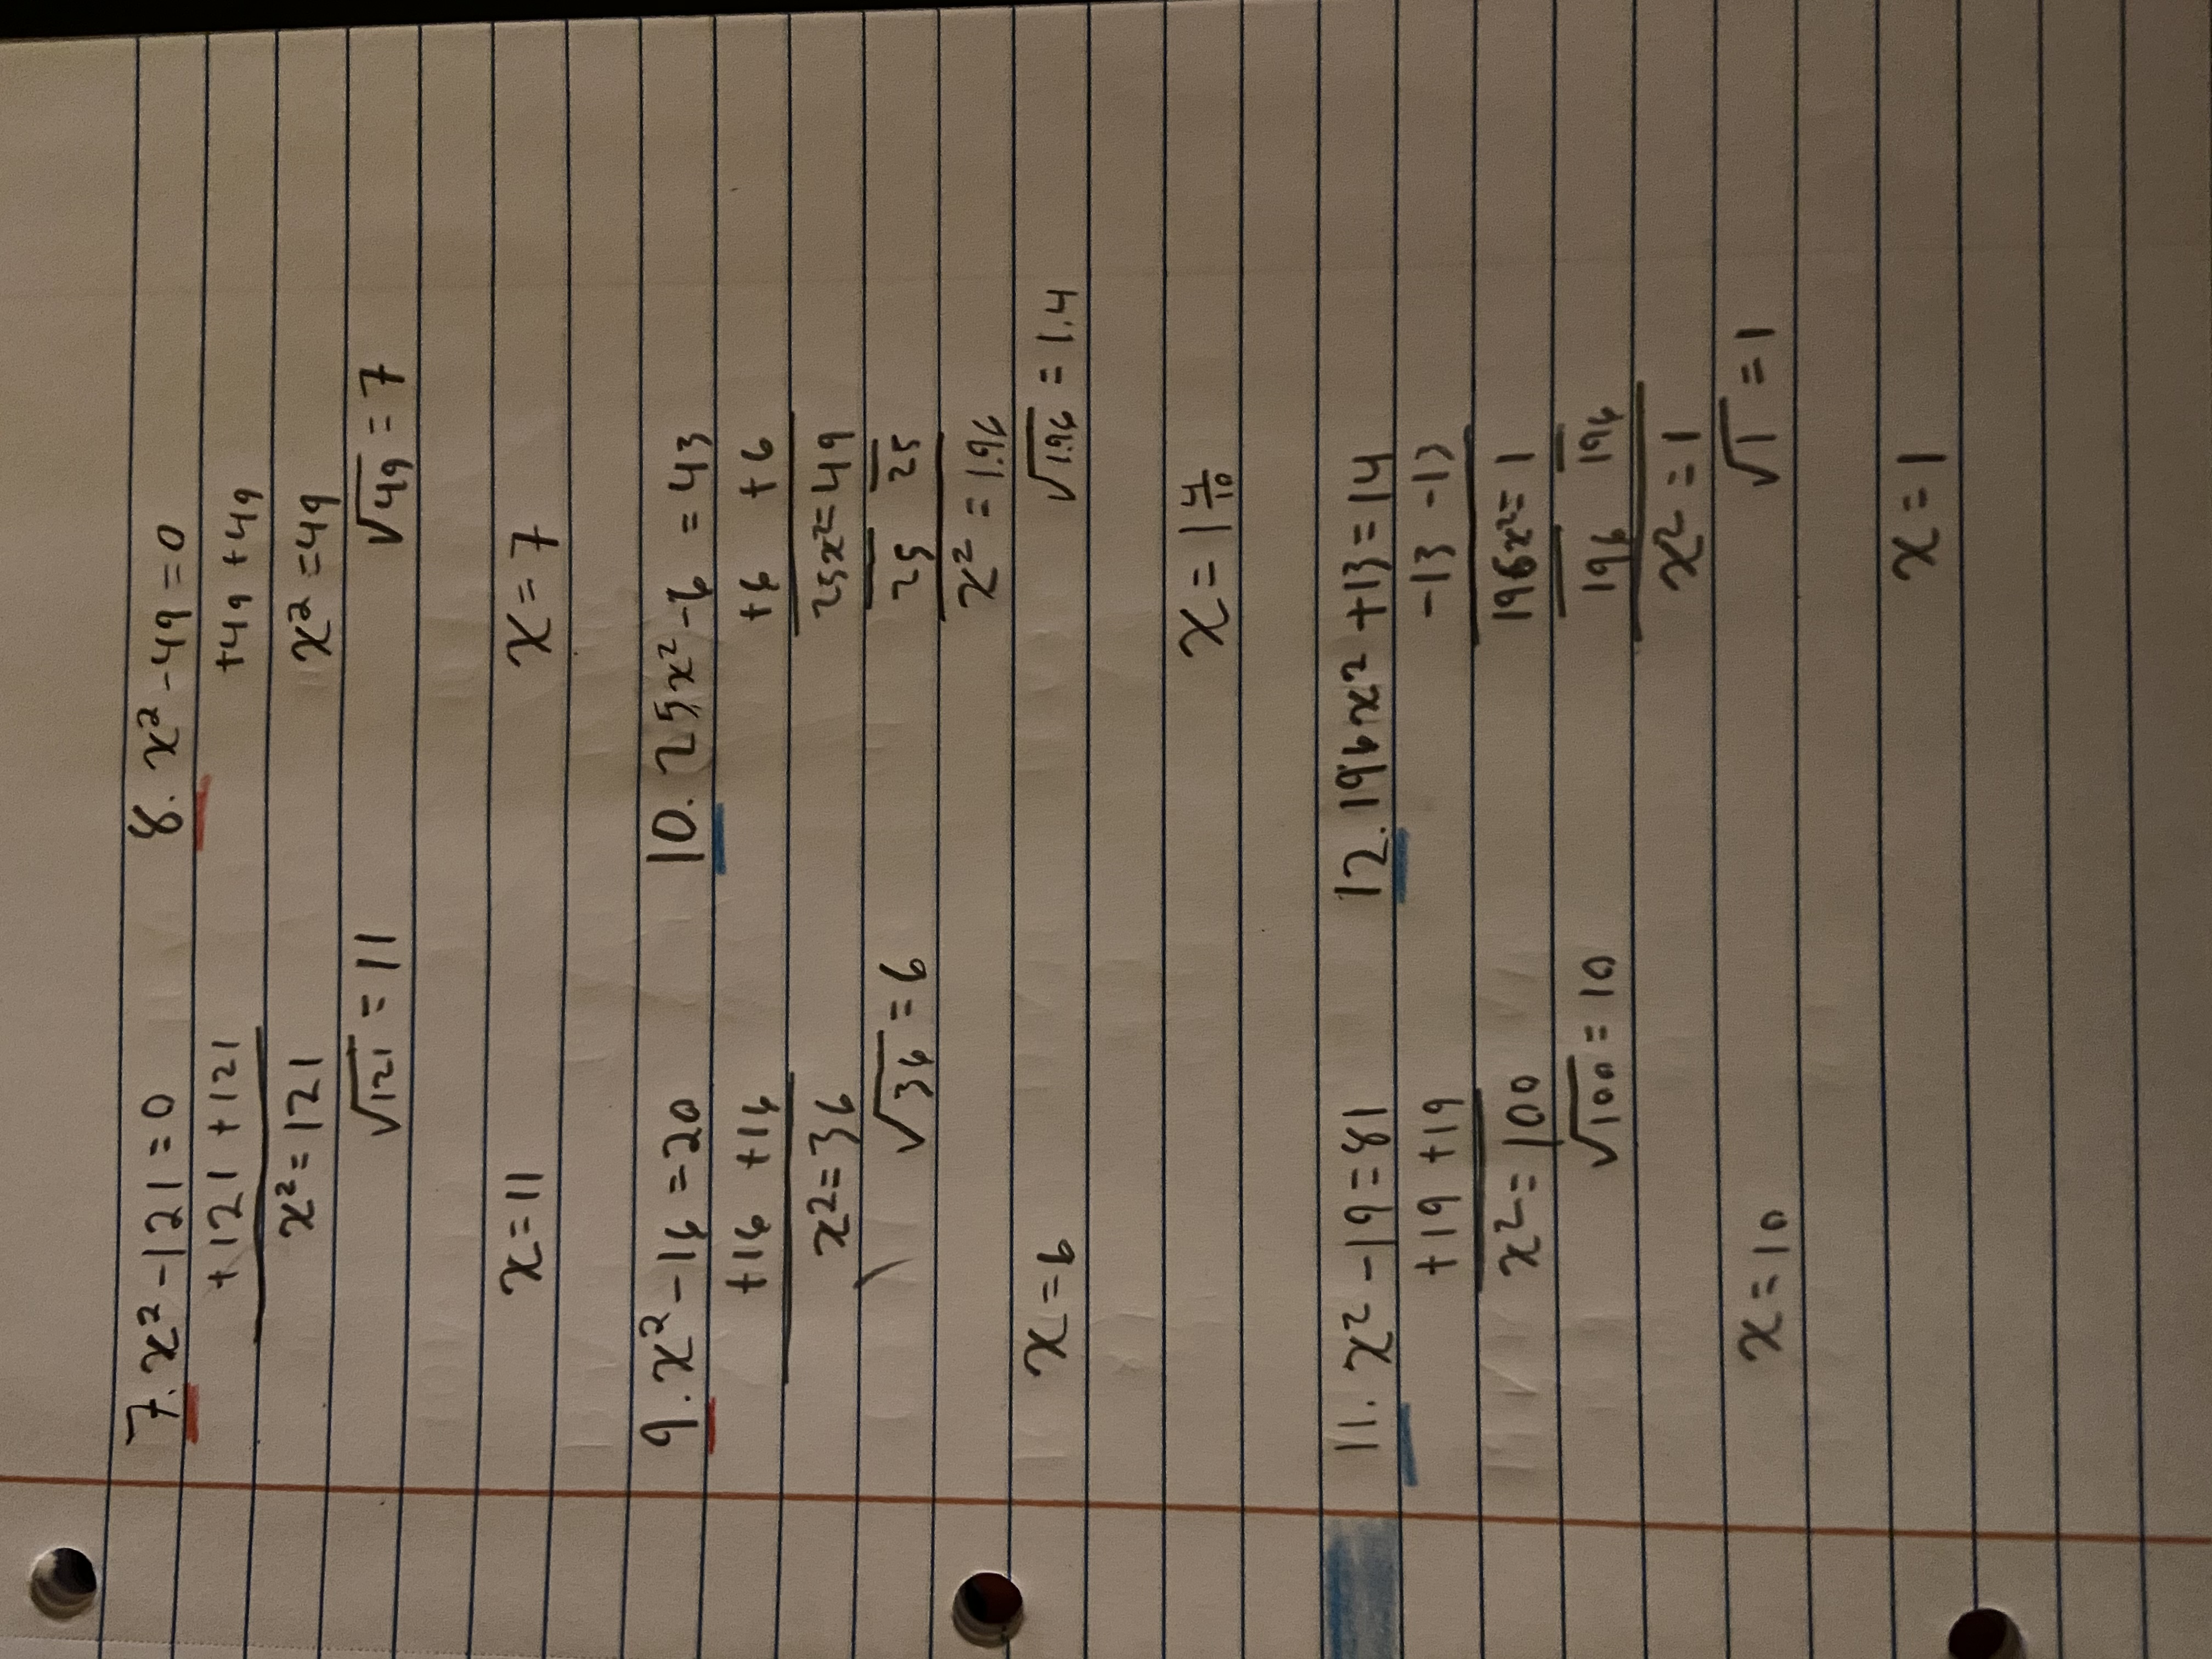 7. x² -121 = 0
+121 +121
x² = 121
√121 = 11
x = 11
8. x² -49 = 0
+49 +49
x² = 49
√49 = 7
x = 7
9. x² -16 = 20
+16 +16
x² = 36
√36 = 6
x = 6
10. 25x² -6 = 43
+6 +6
25x² = 49
25 25
x² = 1.96
√1.96 = 1.4
x = 1 4/10
11. x² -19 = 81
+19 +19
x² = 100
√100 = 10
x = 10
12. 196x² +13 = 14
-13 -13
196x² = 1
196 196
x² = 1
√1 = 1
x = 1